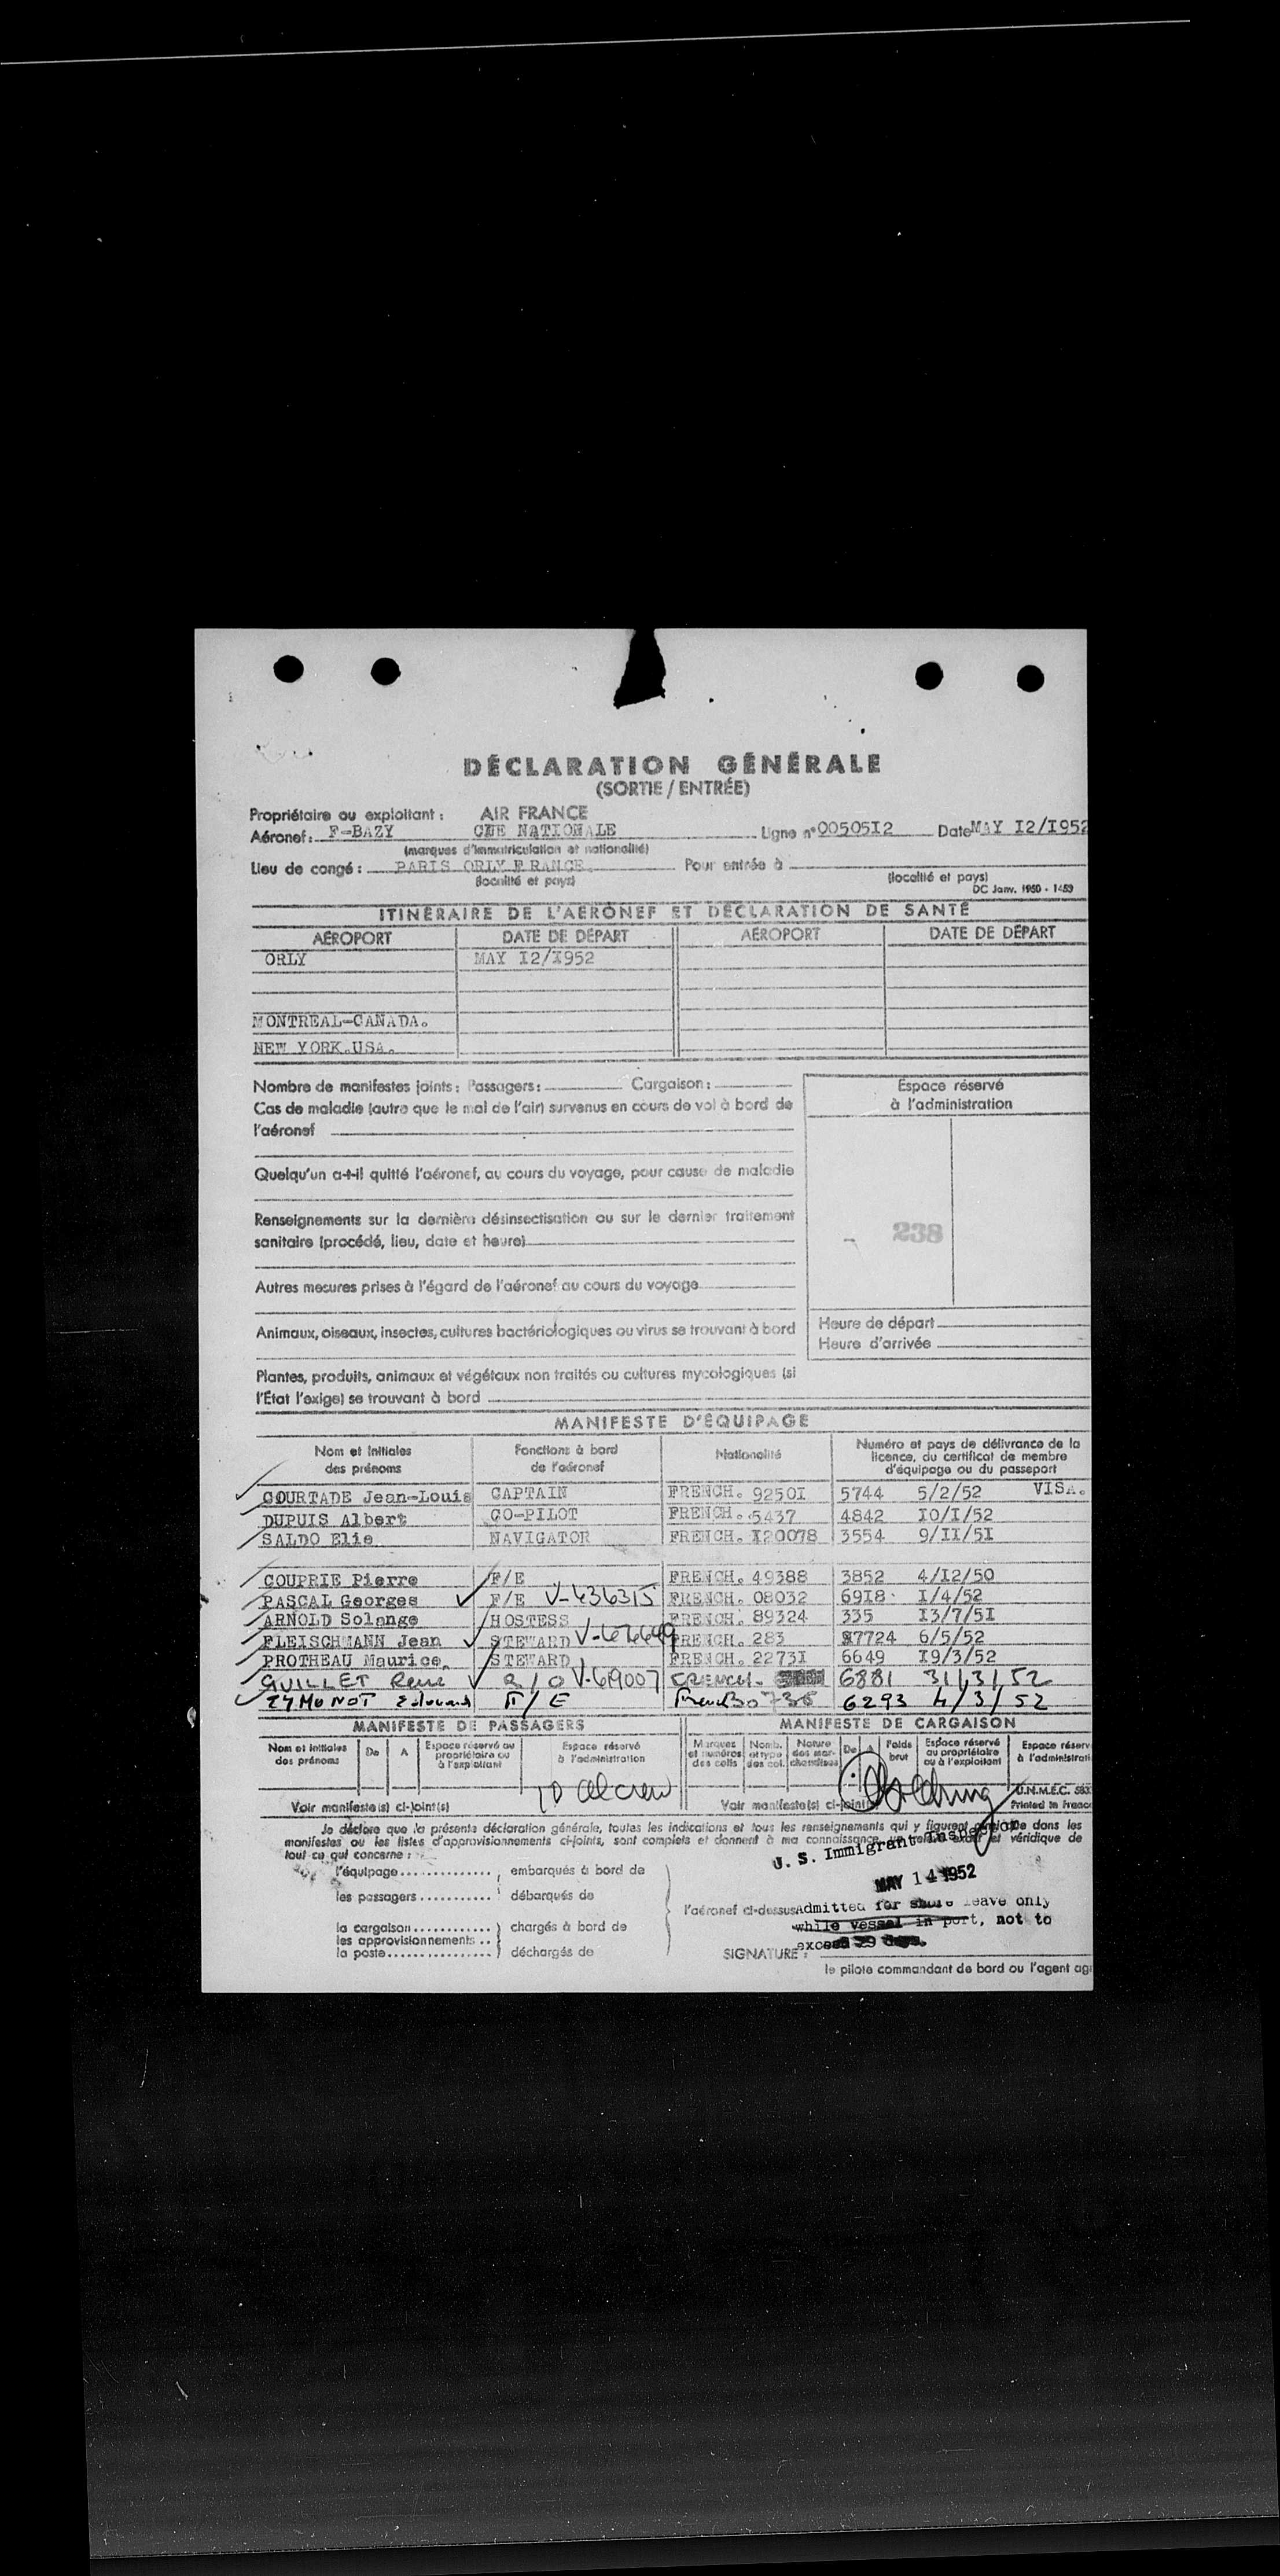 DÉCLARATION GÉNÉRALE
(SORTIE / ENTRÉE)
Propriétaire ou exploitant : AIR FRANCE
Aéronef : F-BAZY CNE NATIONALE Ligne n° 0050512 Date MAY I2/I952
(marques d'immatriculation et nationalité)
Lieu de congé : PARIS ORLY FRANCE. Pour entrée à
(localité et pays) (localité et pays)
DC Janv. 1950 - 1453
ITINÉRAIRE DE L'AÉRONEF ET DÉCLARATION DE SANTÉ
AÉROPORT DATE DE DÉPART AÉROPORT DATE DE DÉPART
ORLY MAY I2/I952
MONTREAL-CANADA.
NEW YORK.USA.
Nombre de manifestes joints : Passagers : Cargaison :
Cas de maladie (autre que le mal de l'air) survenus en cours de vol à bord de
l'aéronef
Quelqu'un a-t-il quitté l'aéronef, au cours du voyage, pour cause de maladie
Renseignements sur la dernière désinsectisation ou sur le dernier traitement
sanitaire (procédé, lieu, date et heure)
Autres mesures prises à l'égard de l'aéronef au cours du voyage
Animaux, oiseaux, insectes, cultures bactériologiques ou virus se trouvant à bord
Plantes, produits, animaux et végétaux non traités ou cultures mycologiques (si
l'État l'exige) se trouvant à bord
Espace réservé
à l'administration
238
Heure de départ
Heure d'arrivée
MANIFESTE D'ÉQUIPAGE
Nom et initiales Fonctions à bord Nationalité Numéro et pays de délivrance de la
des prénoms de l'aéronef licence, du certificat de membre
d'équipage ou du passeport
COURTADE Jean-Louis CAPTAIN FRENCH. 9250I 5744 5/2/52 VISA.
DUPUIS Albert CO-PILOT FRENCH. 5437 4842 I0/I/52
SALDO Elie NAVIGATOR FRENCH. I20078 3554 9/II/5I
COUPRIE Pierre F/E FRENCH. 49388 3852 4/I2/50
PASCAL Georges F/E V-436315 FRENCH. 08032 69I8 I/4/52
ARNOLD Solange HOSTESS FRENCH. 89324 335 I3/7/5I
FLEISCHMANN Jean STEWARD FRENCH. 283 7724 6/5/52
PROTHEAU Maurice. STEWARD FRENCH. 2273I 6649 I9/3/52
GUILLET René R/O V-69007 FRENCH. 6881 31/3/52
ZYMONOT Edouard F/E French 6293 4/3/52
MANIFESTE DE PASSAGERS MANIFESTE DE CARGAISON
Nom et initiales des prénoms De A Espace réservé au propriétaire ou à l'exploitant Espace réservé à l'administration
Marques et numéros des colis Nomb. et type des col. Nature des marchandises De A Poids brut Espace réservé au propriétaire ou à l'exploitant Espace réserv à l'administrati
10 al crew
Voir manifeste(s) ci-joint(s) Voir manifeste(s) ci-joint(s)
U.N.M.E.C.
Printed in France
Je déclare que la présente déclaration générale, toutes les indications et tous les renseignements qui y figurent dans les
manifestes ou les listes d'approvisionnements ci-joints, sont complets et donnent à ma connaissance, un relevé exact et véridique de
tout ce qui concerne :
U. S. Immigrant Inspector
MAY 14 1952
l'équipage , embarqués à bord de
les passagers débarqués de
l'aéronef ci-dessus
Admitted for shore leave only
while vessel in port, not to
exceed 29 days.
la cargaison chargés à bord de
les approvisionnements
la poste déchargés de
SIGNATURE :
le pilote commandant de bord ou l'agent ag